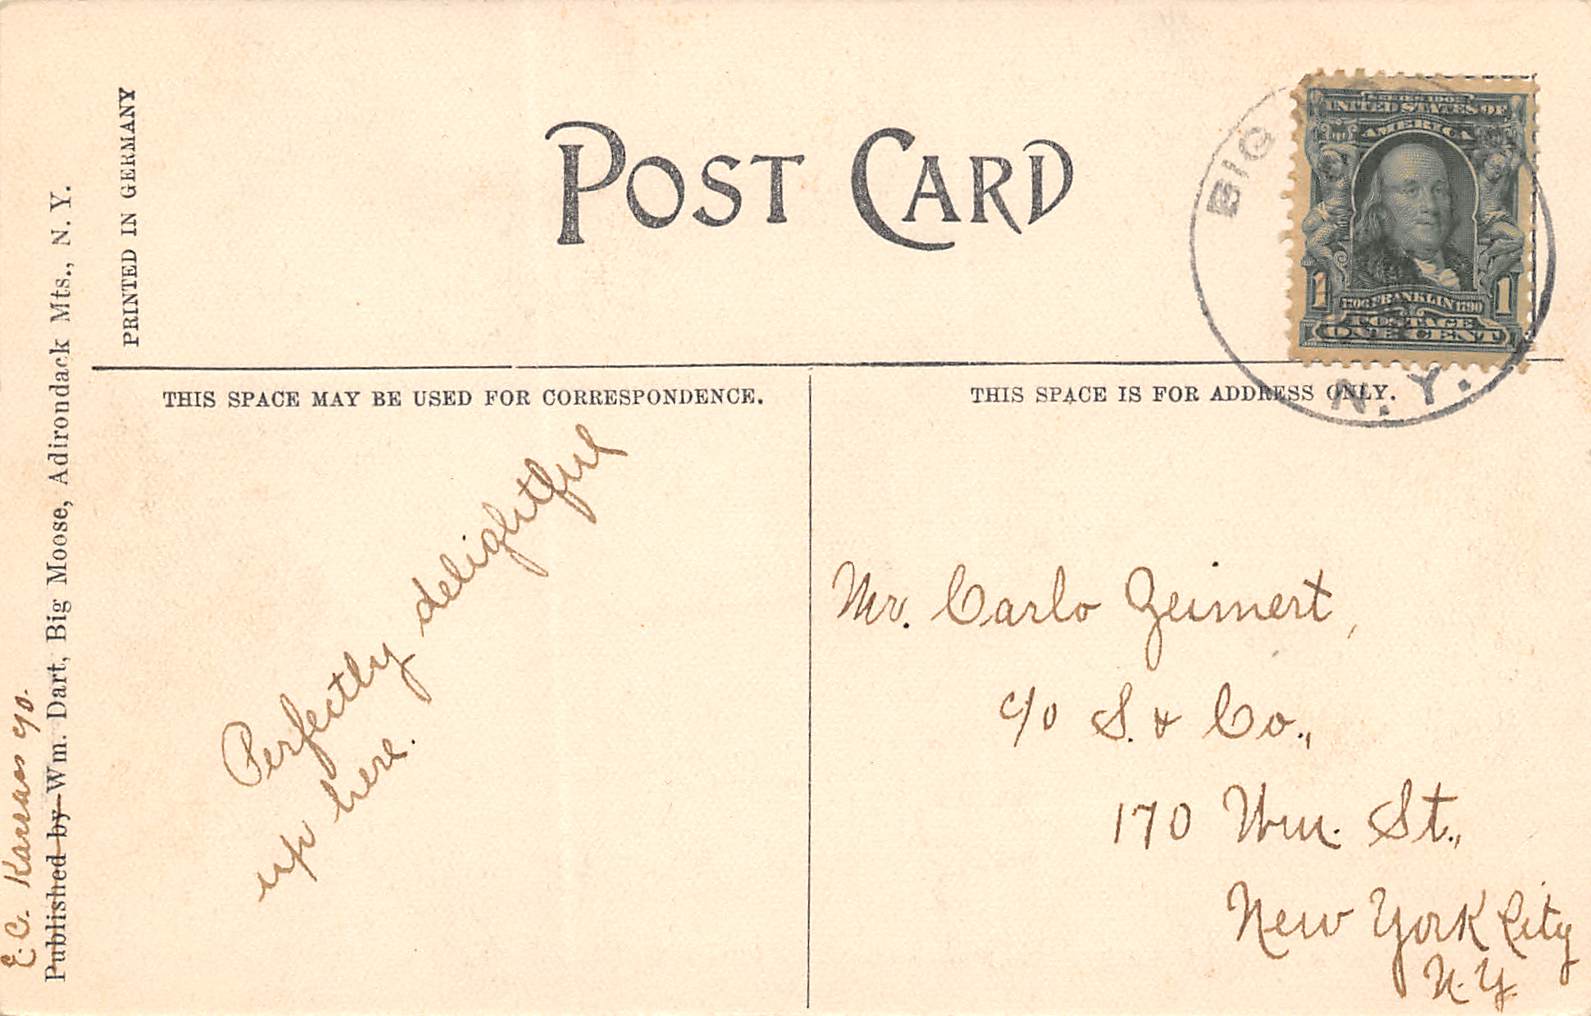 POST CARD
PRINTED IN GERMANY
Published by Wm. Dart, Big Moose, Adirondack Mts., N. Y.
E. C.
BIG
N. Y.
SERIES 1902
UNITED STATES OF
AMERICA
1 1706 FRANKLIN 1790 1
POSTAGE
ONE CENT
THIS SPACE MAY BE USED FOR CORRESPONDENCE.
THIS SPACE IS FOR ADDRESS ONLY.
Perfectly delightful
up here.
Mr. Carlo Zeimert,
c/o S. & Co.,
170 Wm. St.,
New York City
N.Y.